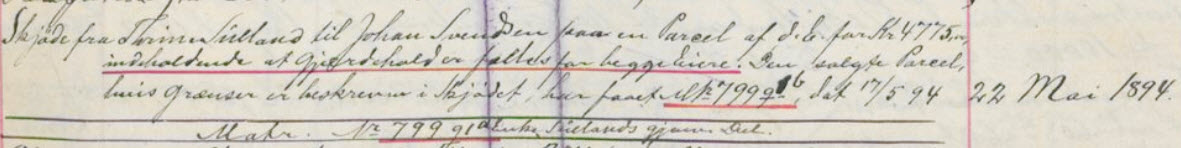 Skjøde fra Trine Sueland til Johan Svendsen paa en Parcel af d.E. for Kr 4775,
indeholdende at Gjerdehold er fælles for begge Eiere. Den solgte Parcel,
hvis Grænser er beskreven i Skjødet, har faaet M№ 799 q 1b, dat 17/5 94 22 Mai 1894.
Matr. Nr 799 q 1a Enke Suelands gjenv. Del.